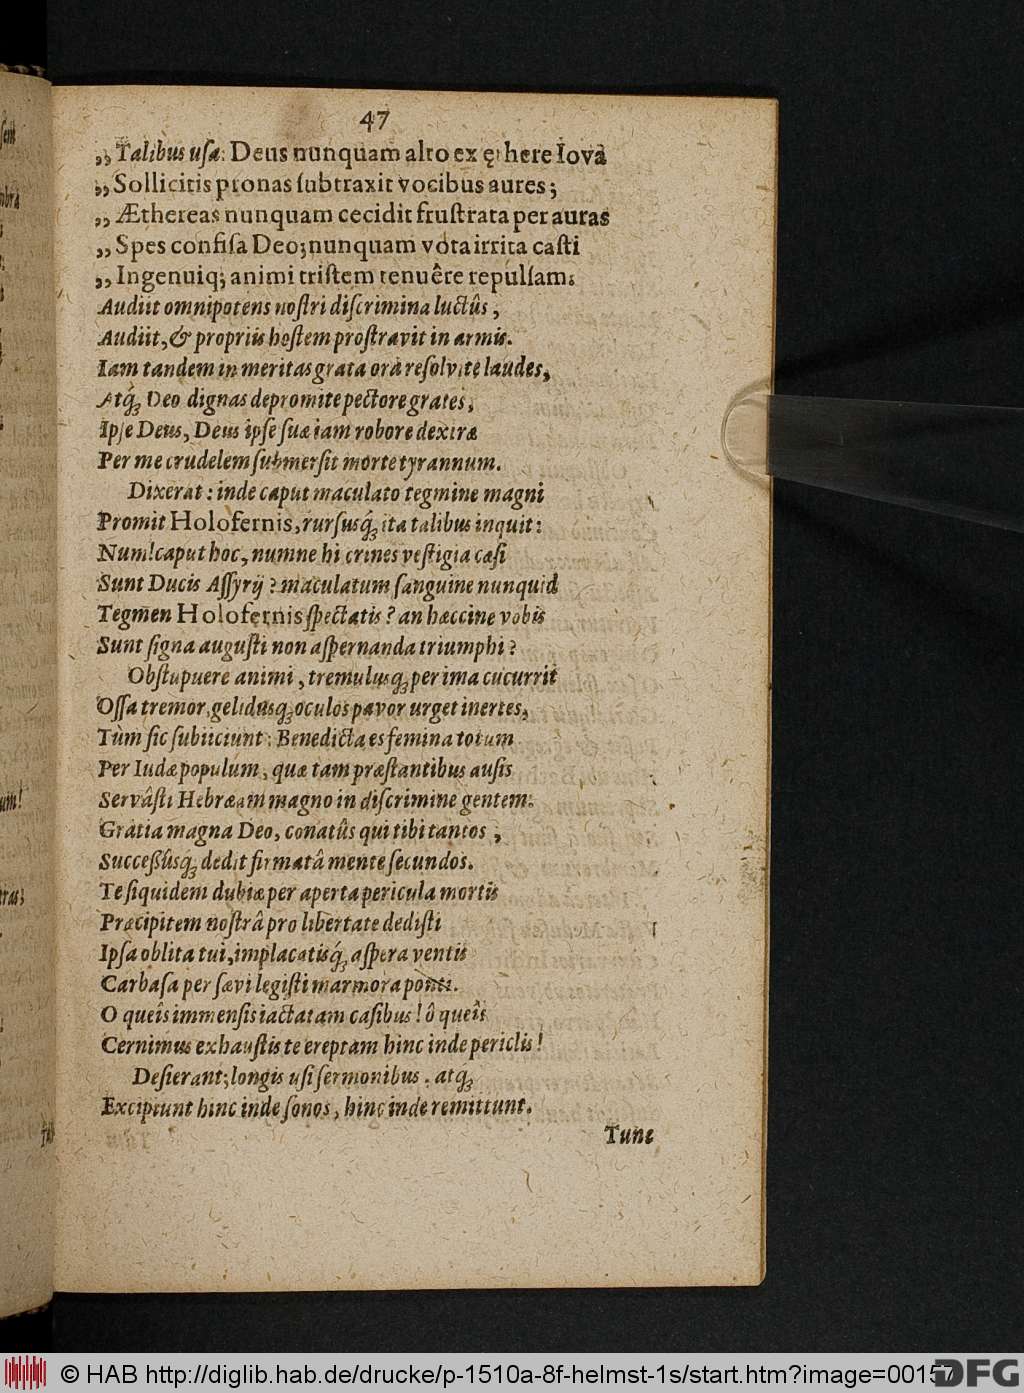 47
„Talibus usa: Deus nunquam alto ex ęthere Iova
„Sollicitis pronas ſubtraxit vocibus aures;
„Æthereas nunquam cecidit fruſtrata per auras
„Spes confiſa Deo; nunquam vota irrita caſti
„Ingenuiq; animi triſtem tenuêre repulſam.
Audiit omnipotens noſtri diſcrimina luctûs,
Audiit, & propriis hoſtem proſtravit in armis.
Iam tandem in meritas grata ora reſolvite laudes,
Atq́; Deo dignas depromite pectore grates,
Ipſe Deus, Deus ipſe ſuæ iam robore dextræ
Per me crudelem ſubmerſit morte tyrannum.
Dixerat: inde caput maculato tegmine magni
Promit Holofernis, rurſusq́; ita talibus inquit:
Num! caput hoc, numne hi crines veſtigia caſi
Sunt Ducis Aſſyrij? maculatum ſanguine nunquid
Tegmen Holofernis ſpectatis? an hæccine vobis
Sunt ſigna auguſti non aſpernanda triumphi?
Obſtupuere animi, tremulusq; per ima cucurrit
Oſſa tremor, gelidusq; oculos pavor urget inertes,
Tùm ſic ſubiiciunt: Benedicta es femina totum
Per Iudæ populum, quæ tam præſtantibus auſis
Servâſti Hebræam magno in diſcrimine gentem:
Gratia magna Deo, conatûs qui tibi tantos,
Succeſſûsq; dedit firmatâ mente ſecundos.
Te ſiquidem dubiæ per aperta pericula mortis
Præcipitem noſtrâ pro libertate dediſti
Ipſa oblita tui, implacatisq́; aſpera ventis
Carbaſa per ſævi legiſti marmora ponti.
O queîs immenſis iactatam caſibus! ô queîs
Cernimus exhauſtis te ereptam hinc inde periclis!
Deſierant; longis uſi ſermonibus. atq;
Excipiunt hinc inde ſonos, hinc inde remittunt.
Tunc
© HAB http://diglib.hab.de/drucke/p-1510a-8f-helmst-1s/start.htm?image=00157
DFG